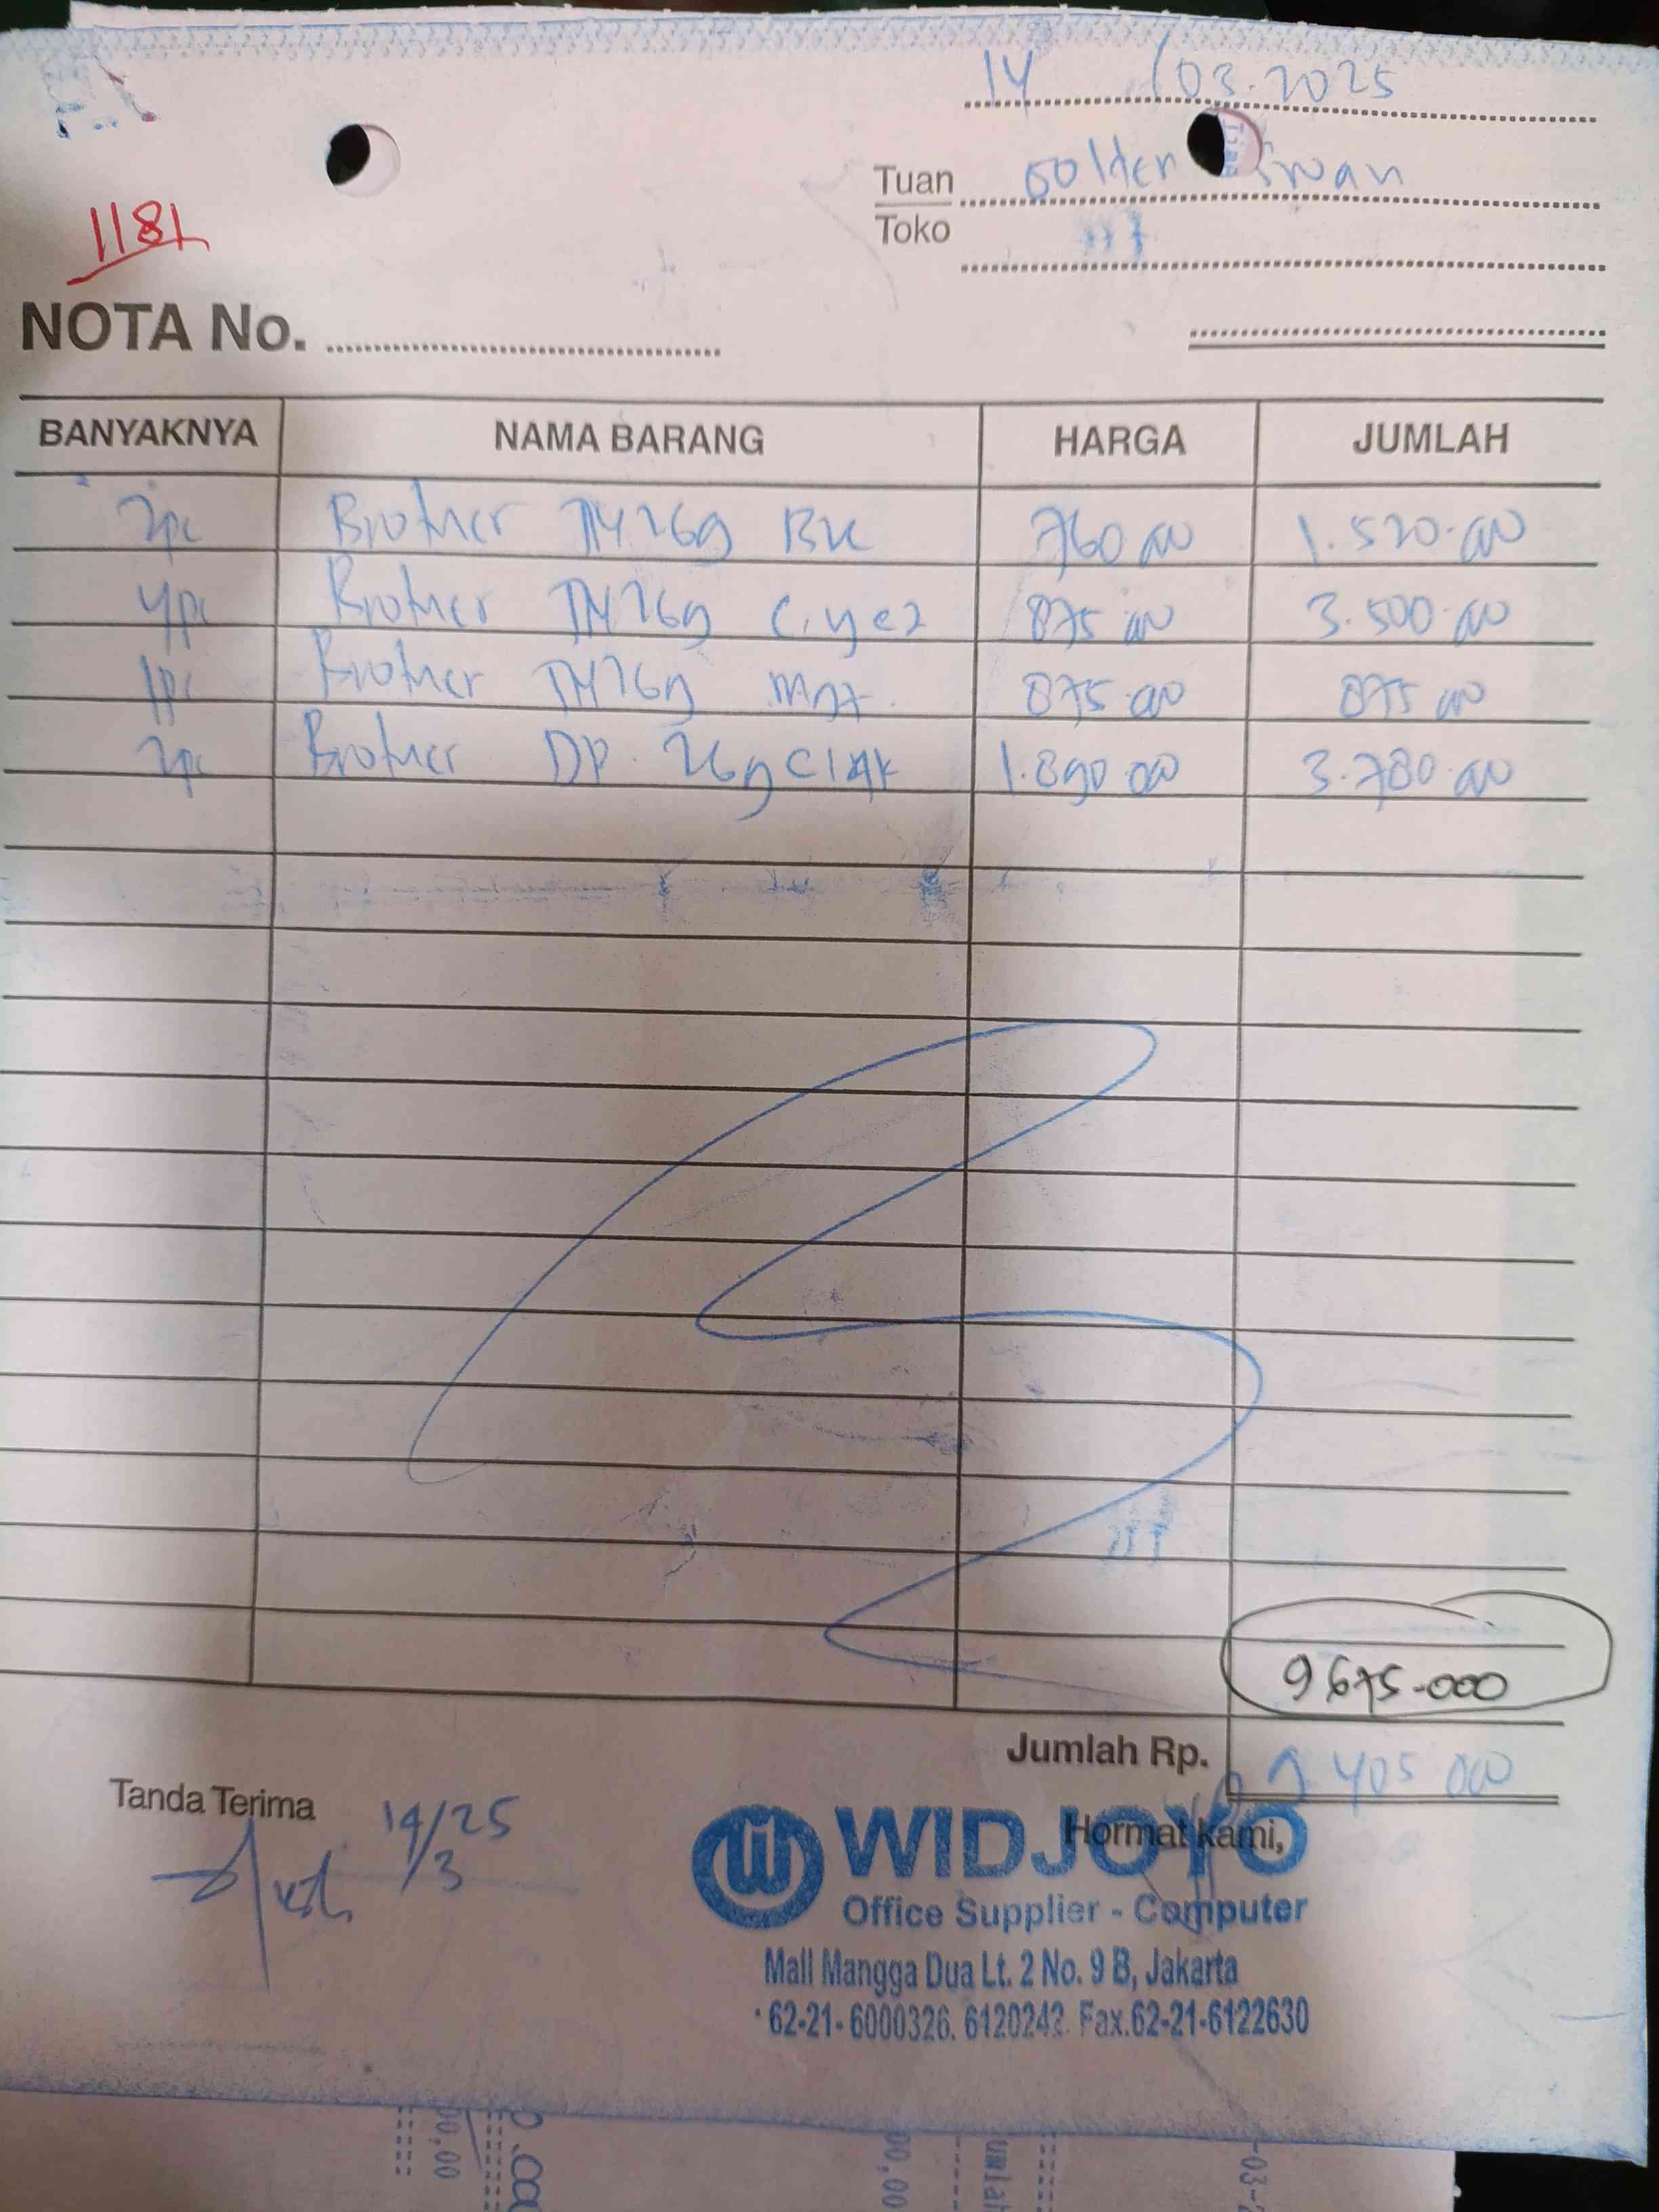 14 / 03.2025
Tuan Golden Swan
Toko
1181
NOTA No.
BANYAKNYA NAMA BARANG HARGA JUMLAH
2pc Brother TN 269 BK 760.000 1.520.000
4pc Brother TN 269 C.ye2 875.000 3.500.000
1pc Brother TN 269 875.000 875.000
2pc Brother DP. 269 1.890.000 3.780.000
9675.000
Jumlah Rp. 9 405 000
Tanda Terima 14/3 25
Hormat kami,
WIDJOYO
Office Supplier - Computer
Mall Mangga Dua Lt. 2 No. 9 B, Jakarta
62-21-6000326. 6120242. Fax.62-21-6122630